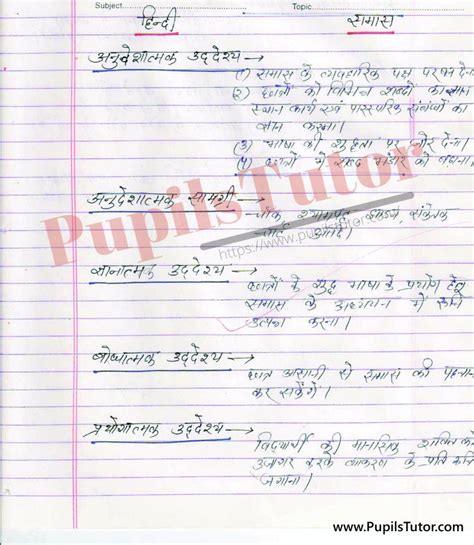 Subject Topic
हिन्दी समास
अनुदेशात्मक उद्देश्य →
(1) समास के व्यवहारिक पक्ष पर बल देना
(2) छात्रों को विभिन्न शब्दों का
स्थान कार्य एवं पारस्परिक संबंधों का
ज्ञान कराना।
(3) भाषा की शुद्धता पर जोर देना।
(4) छात्रों में शब्द भंडार को बढ़ाना
अनुदेशात्मक सामग्री →
चॉक श्यामपट्ट झाड़न संकेतक
चार्ट आदि।
PupilsTutor
https://www.pupilstutor.com
ज्ञानात्मक उद्देश्य →
छात्रों के शुद्ध भाषा के प्रयोग हेतु
समास के अध्ययन में रुचि
उत्पन्न करना।
बोधात्मक उद्देश्य →
छात्र आसानी से समास की पहचान
कर सकेंगे।
प्रयोगात्मक उद्देश्य →
विद्यार्थी की मानसिक शक्ति को
उजागर करके व्याकरण के प्रति रुचि
जगाना।
www.PupilsTutor.com